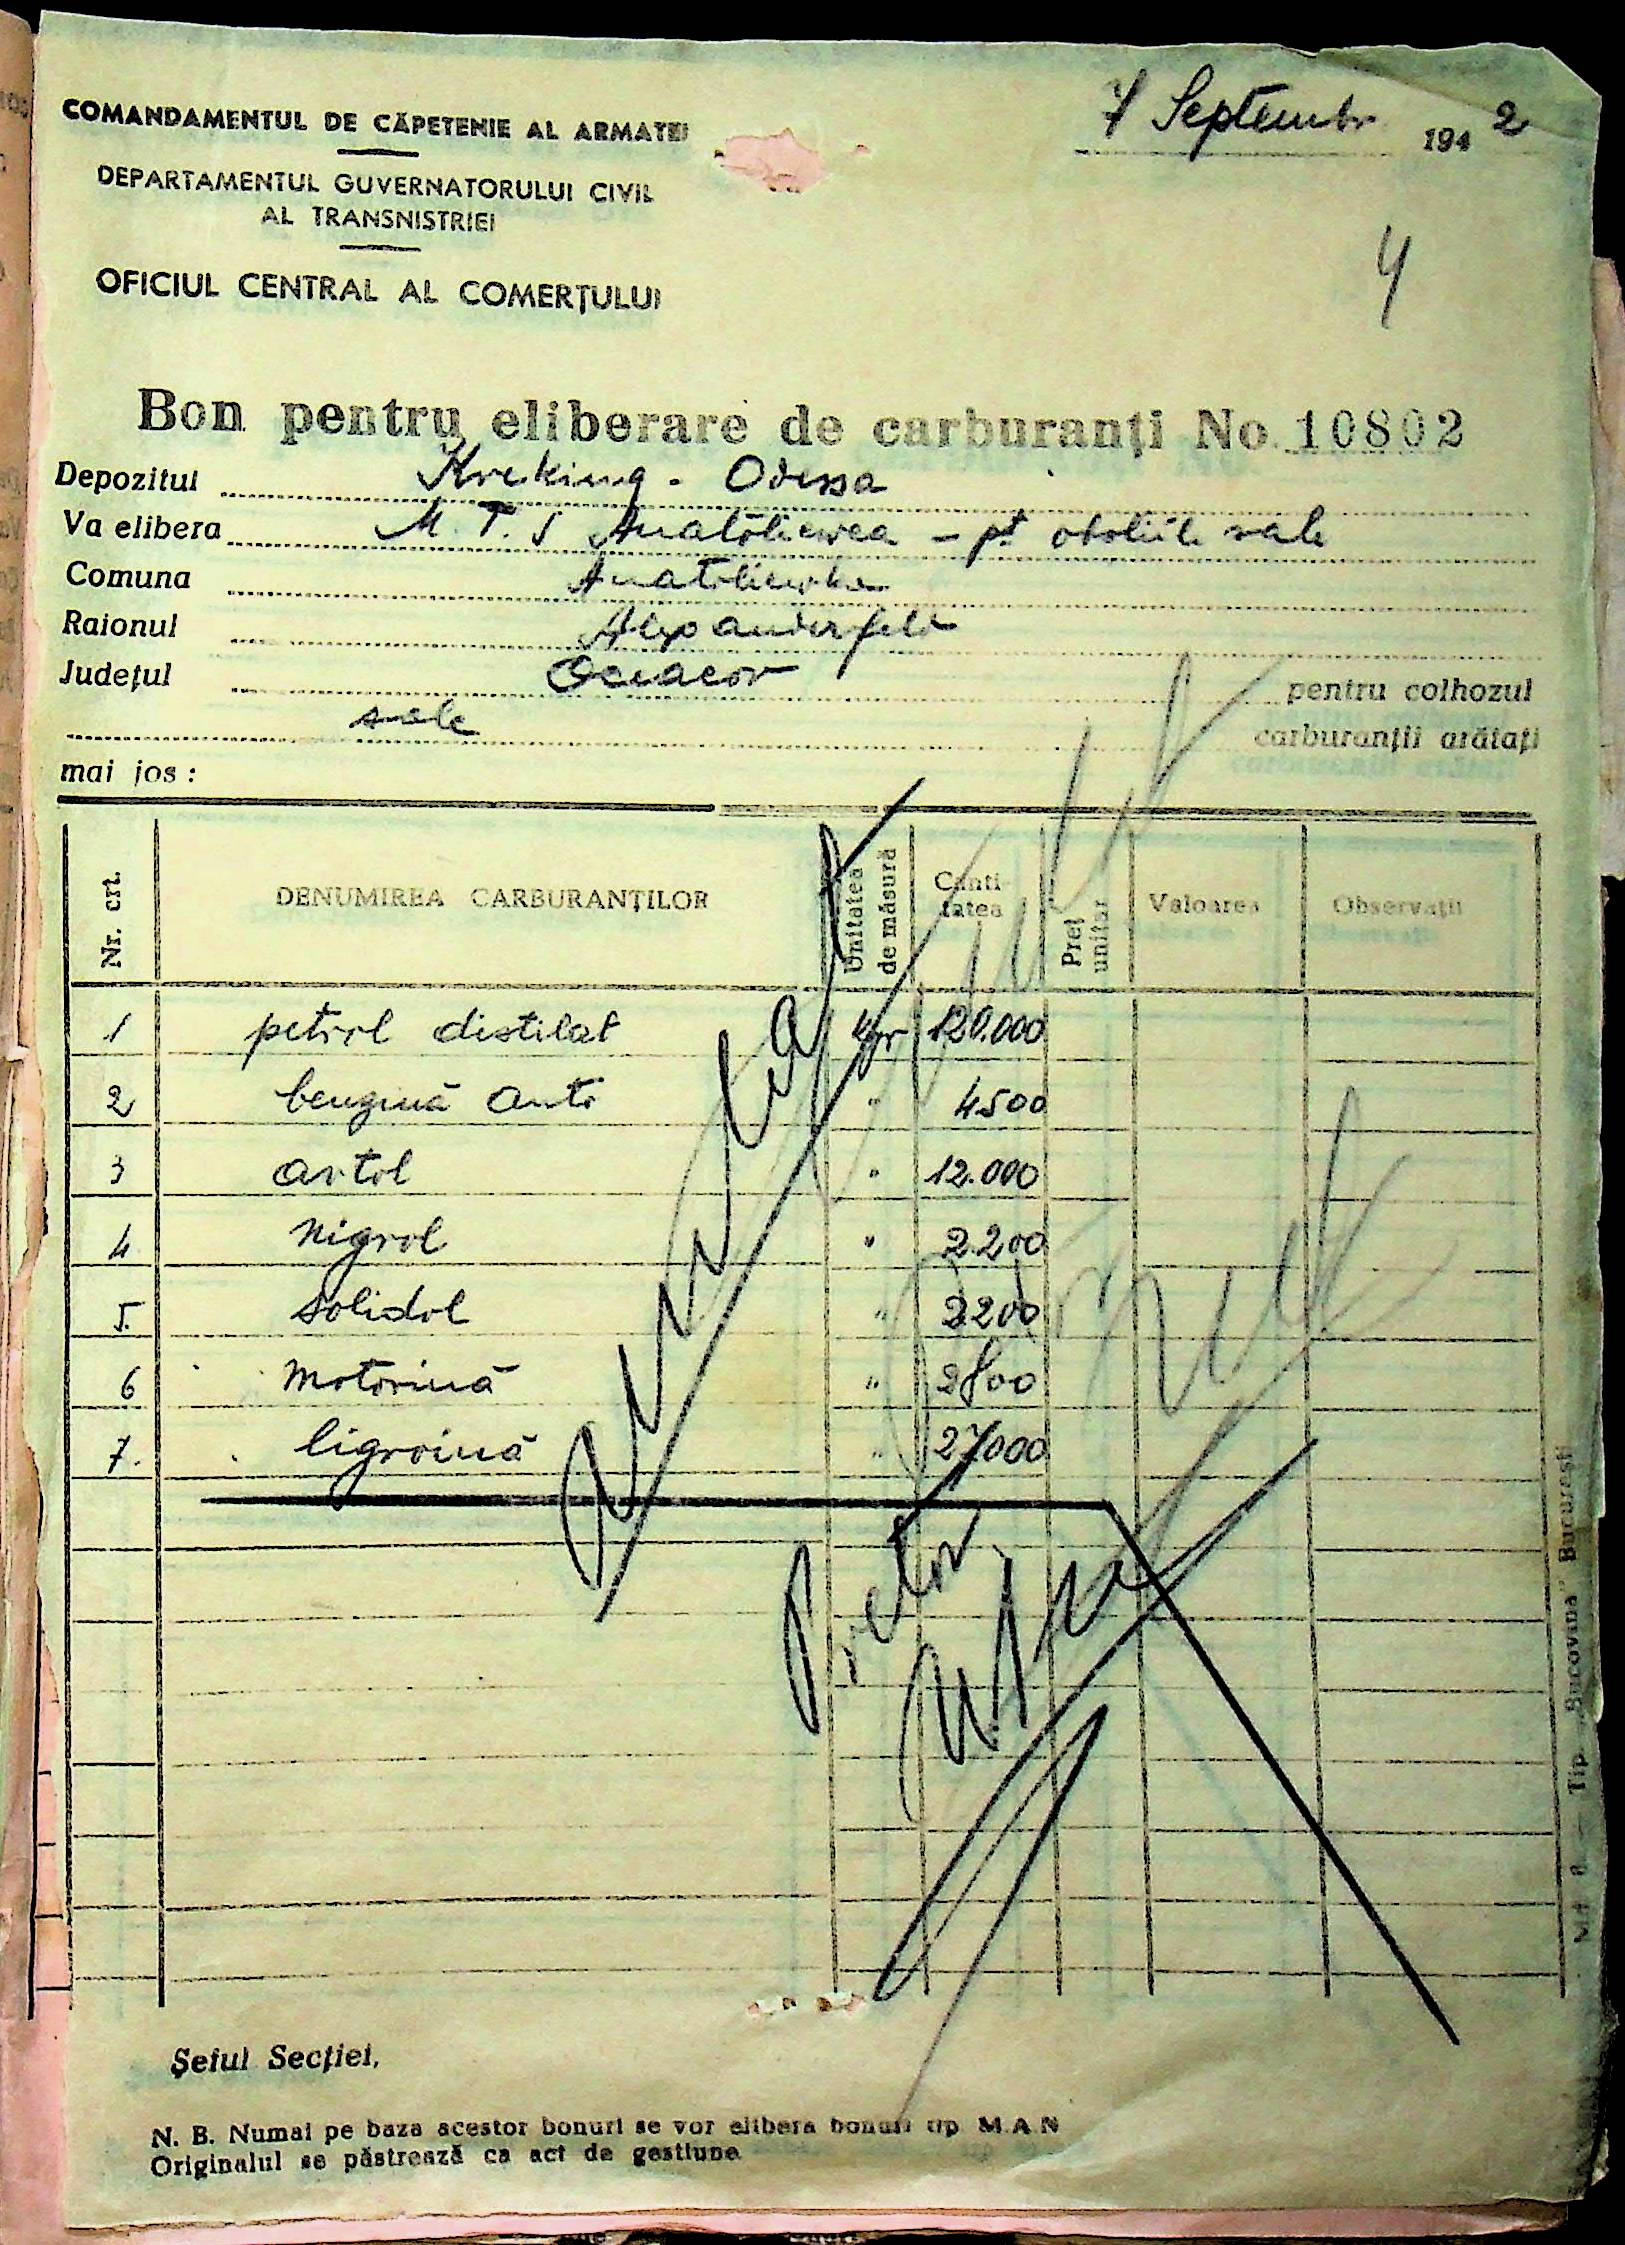 COMANDAMENTUL DE CĂPETENIE AL ARMATEI
7 Septembr 1942
DEPARTAMENTUL GUVERNATORULUI CIVIL
AL TRANSNISTRIEI
4
OFICIUL CENTRAL AL COMERȚULUI
Bon pentru eliberare de carburanți No. 10802
Depozitul Kreking - Odessa
Va elibera M. T. S Anatoliewca - pt. sale
Comuna Anatoliewka
Raionul Alexanderfeld
Județul Oceacov pentru colhozul
sale carburanții arătați
mai jos :
Nr. crt. DENUMIREA CARBURANȚILOR Unitatea de măsură Cantitatea Preț unitar Valoarea Observații
1 petrol distilat kgr 120.000
2 benzină auto " 4500
3 avtol " 12.000
4 nigrol " 2.200
5. solidol " 2200
6 Motorină " 2800
7. ligroină " 27000
Anulat
Pretor
Șeful Secției,
N. B. Numai pe baza acestor bonuri se vor elibera bonuri tip M.A.N
Originalul se păstrează ca act de gestiune
Tip. „Bucovina" București